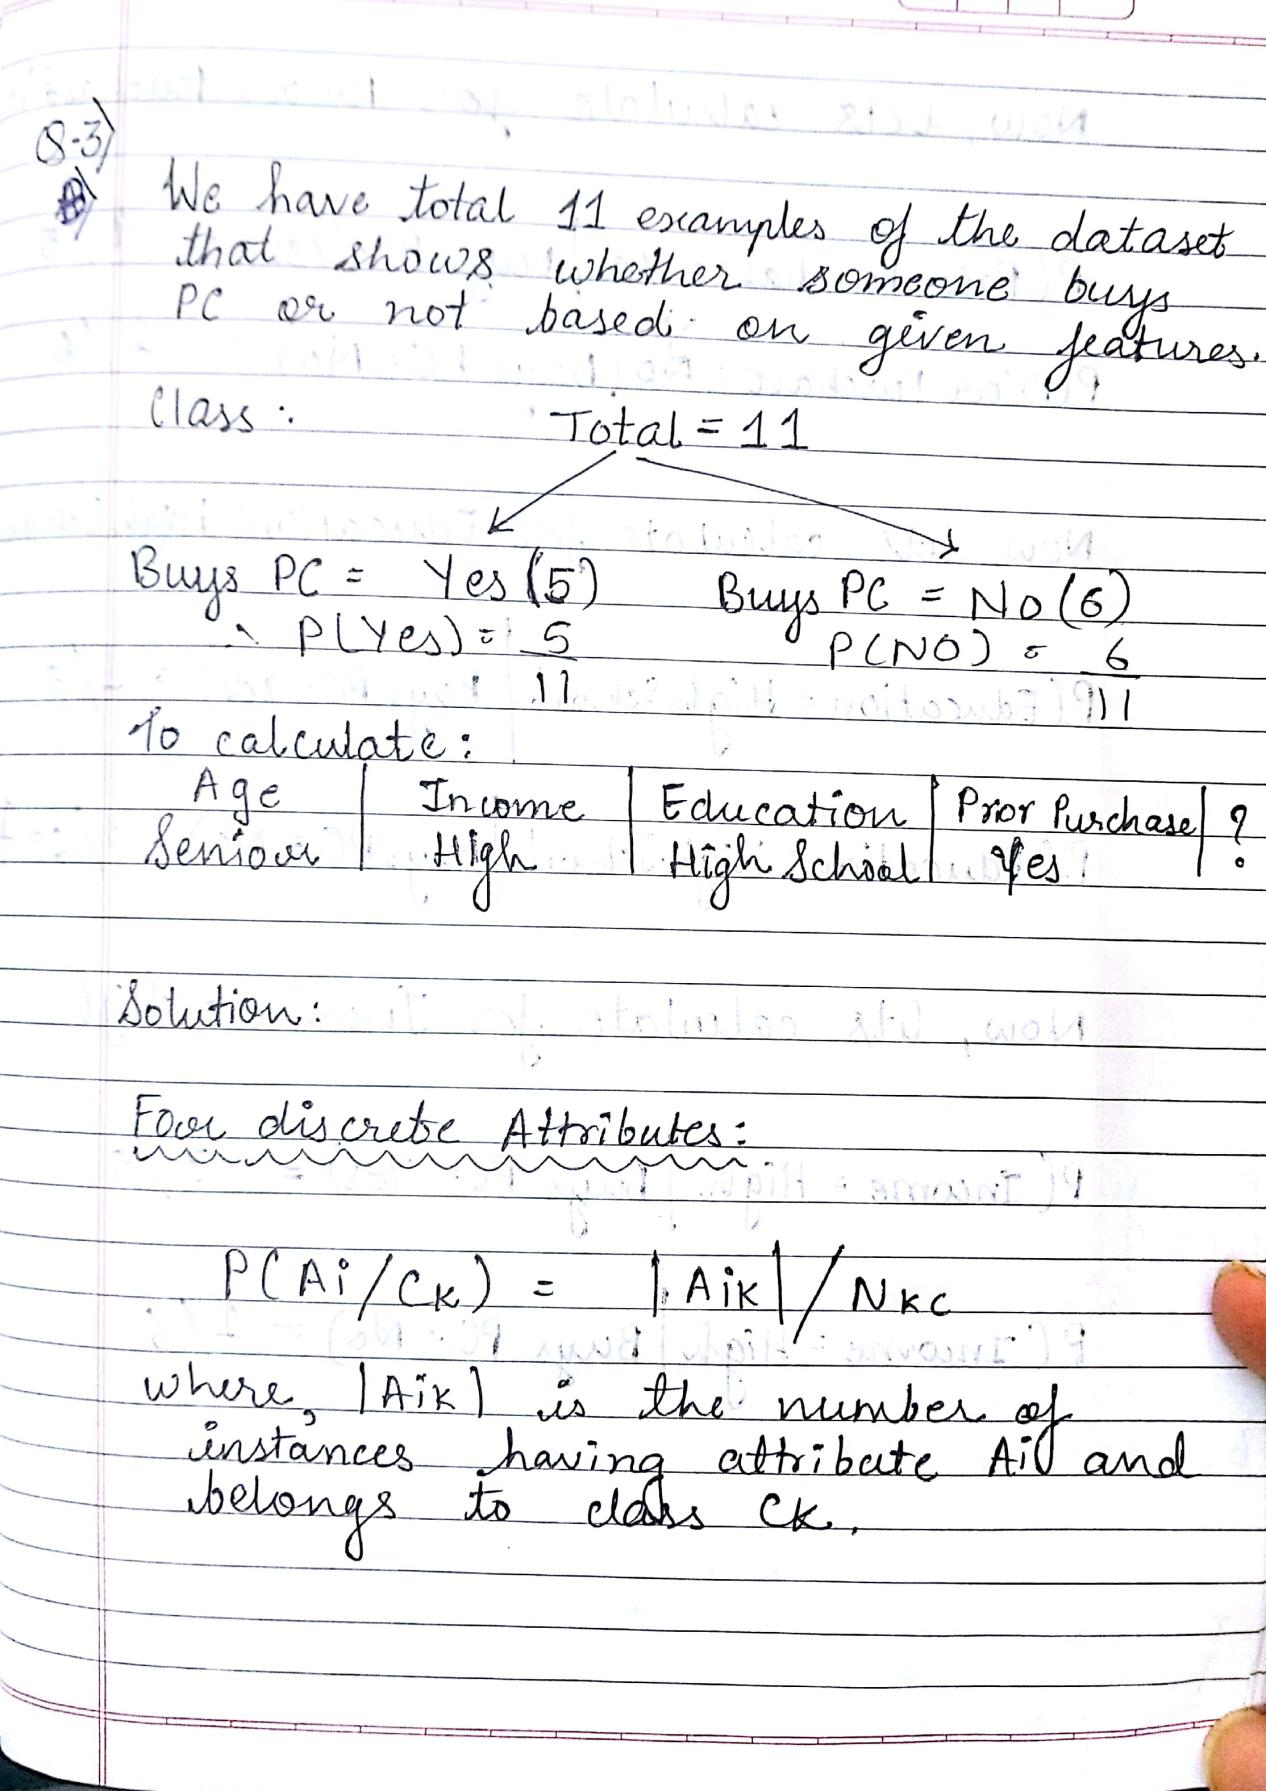 Q-3)
We have total 11 examples of the dataset
that shows whether someone buys
PC or not based on given features.
Class : Total = 11
Buys PC = Yes (5) Buys PC = No (6)
P(Yes) = 5/11 P(NO) = 6/11
To calculate :
Age | Income | Education | Prior Purchase | ?
Senior | High | High School | Yes
Solution :
For discrete Attributes :
P(Ai/Ck) = |Aik| / Nkc
where, |Aik| is the number of
instances having attribute Ai and
belongs to class Ck.